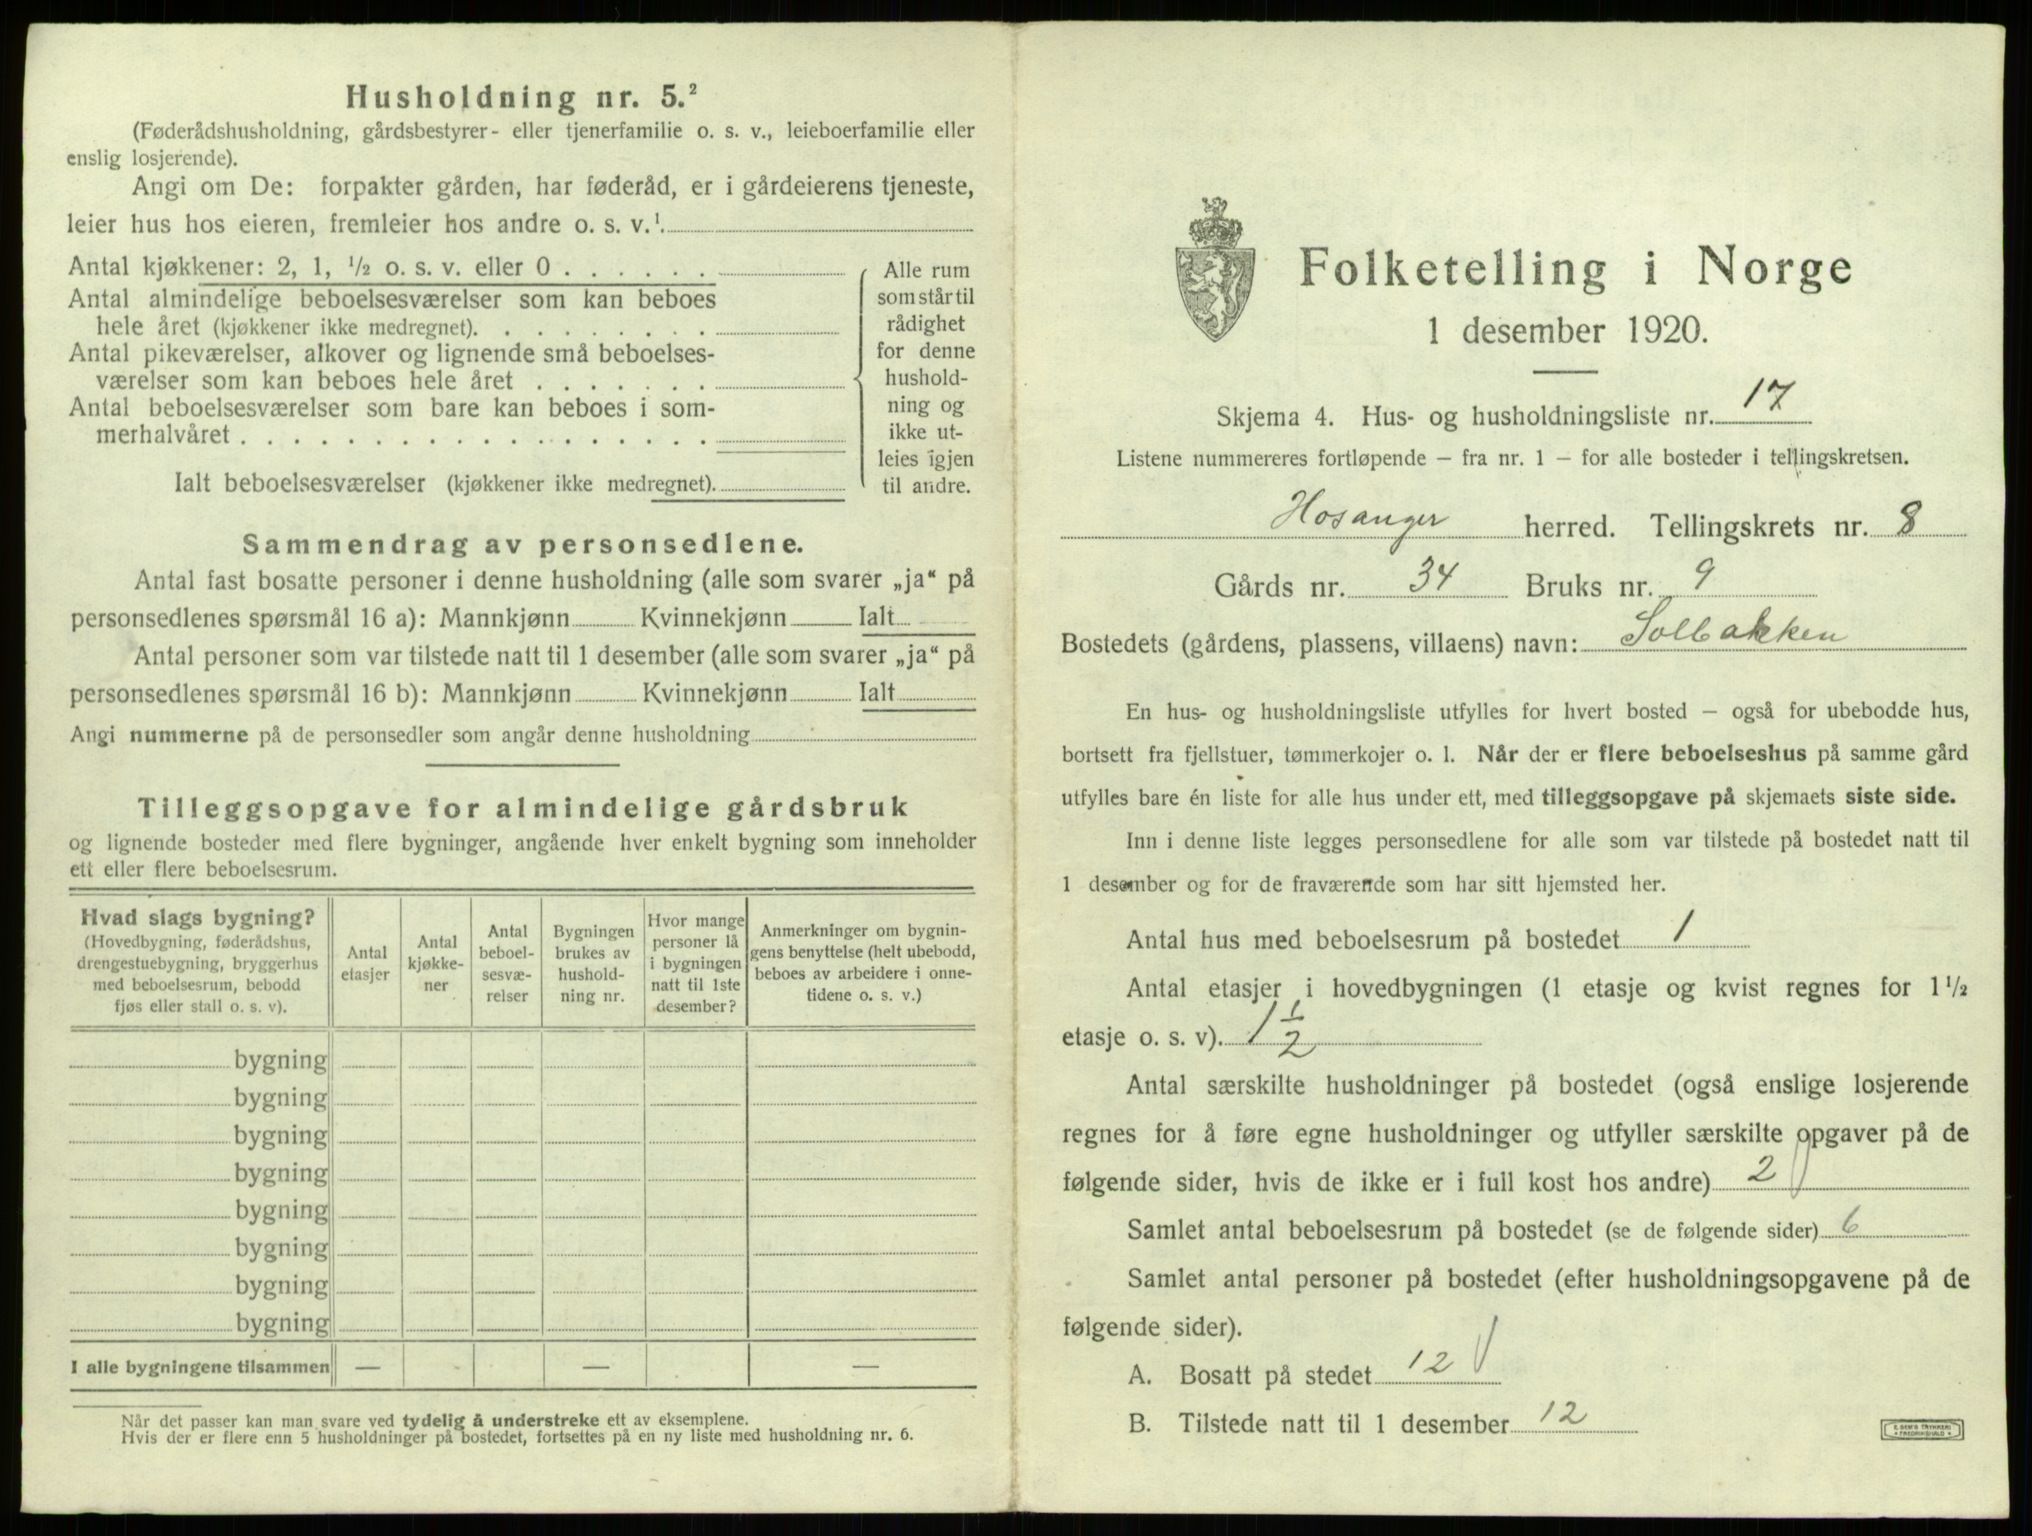 Husholdning nr. 5.²
(Føderådshusholdning, gårdsbestyrer- eller tjenerfamilie o. s. v., leieboerfamilie eller
enslig losjerende).
Angi om De: forpakter gården, har føderåd, er i gårdeierens tjeneste,
leier hus hos eieren, fremleier hos andre o. s. v.¹
Antal kjøkkener: 2, 1, ½ o. s. v. eller 0 . . . . . .
Antal almindelige beboelsesværelser som kan beboes
hele året (kjøkkener ikke medregnet). . . . . . . . .
Antal pikeværelser, alkover og lignende små beboelses-
værelser som kan beboes hele året . . . . . . .
Antal beboelsesværelser som bare kan beboes i som-
merhalvåret . . . . . . . . . . . . . . . . . .
Ialt beboelsesværelser (kjøkkener ikke medregnet).
Alle rum
som står til
rådighet
for denne
hushold-
ning og
ikke ut-
leies igjen
til andre.
Sammendrag av personsedlene.
Antal fast bosatte personer i denne husholdning (alle som svarer „ja“ på
personsedlenes spørsmål 16 a): Mannkjønn Kvinnekjønn Ialt
Antal personer som var tilstede natt til 1 desember (alle som svarer „ja“ på
personsedlenes spørsmål 16 b): Mannkjønn Kvinnekjønn Ialt
Angi nummerne på de personsedler som angår denne husholdning
Tilleggsopgave for almindelige gårdsbruk
og lignende bosteder med flere bygninger, angående hver enkelt bygning som inneholder
ett eller flere beboelsesrum.
Hvad slags bygning?
(Hovedbygning, føderådshus,
drengestuebygning, bryggerhus
med beboelsesrum, bebodd
fjøs eller stall o. s. v).
Antal
etasjer
Antal
kjøkke-
ner
Antal
beboel-
sesvæ-
relser
Bygningen
brukes av
hushold-
ning nr.
Hvor mange
personer lå
i bygningen
natt til 1ste
desember?
Anmerkninger om bygnin-
gens benyttelse (helt ubebodd,
beboes av arbeidere i onne-
tidene o. s. v.)
bygning
bygning
bygning
bygning
bygning
bygning
bygning
bygning
I alle bygningene tilsammen — — —
Når det passer kan man svare ved tydelig å understreke ett av eksemplene.
Hvis der er flere enn 5 husholdninger på bostedet, fortsettes på en ny liste med husholdning nr. 6.
Folketelling i Norge
1 desember 1920.
Skjema 4. Hus- og husholdningsliste nr. 17
Listene nummereres fortløpende — fra nr. 1 — for alle bosteder i tellingskretsen.
Hosanger herred. Tellingskrets nr. 8
Gårds nr. 34 Bruks nr. 9
Bostedets (gårdens, plassens, villaens) navn: Solbakken
En hus- og husholdningsliste utfylles for hvert bosted — også for ubebodde hus,
bortsett fra fjellstuer, tømmerkojer o. l. Når der er flere beboelseshus på samme gård
utfylles bare én liste for alle hus under ett, med tilleggsopgave på skjemaets siste side.
Inn i denne liste legges personsedlene for alle som var tilstede på bostedet natt til
1 desember og for de fraværende som har sitt hjemsted her.
Antal hus med beboelsesrum på bostedet 1
Antal etasjer i hovedbygningen (1 etasje og kvist regnes for 1½
etasje o. s. v). 1½
Antal særskilte husholdninger på bostedet (også enslige losjerende
regnes for å føre egne husholdninger og utfyller særskilte opgaver på de
følgende sider, hvis de ikke er i full kost hos andre) 2
Samlet antal beboelsesrum på bostedet (se de følgende sider) 6
Samlet antal personer på bostedet (efter husholdningsopgavene på de
følgende sider).
A. Bosatt på stedet 12
B. Tilstede natt til 1 desember 12
E. SEM'S TRYKKERI
FREDRIKSHALD